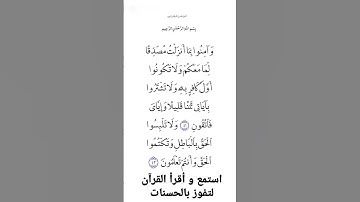 بِسْمِ اللَّهِ الرَّحْمَٰنِ الرَّحِيمِ
وَءَامِنُوا بِمَا أَنزَلْتُ مُصَدِّقًا
لِّمَا مَعَكُمْ وَلَا تَكُونُوا
أَوَّلَ كَافِرٍ بِهِ وَلَا تَشْتَرُوا
بِآيَاتِي ثَمَنًا قَلِيلًا وَإِيَّايَ
فَاتَّقُونِ ٤١ وَلَا تَلْبِسُوا
الْحَقَّ بِالْبَاطِلِ وَتَكْتُمُوا
الْحَقَّ وَأَنتُمْ تَعْلَمُونَ ٤٢
استمع و أقرأ القرآن
لتفوز بالحسنات